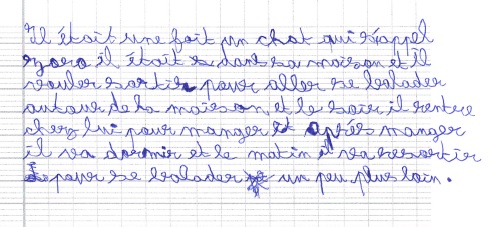 Il était une fait un chat qui s'appel
zoro il était s dant sa maison et Il
vouler sortir pour aller se balader
autour de la maison et le soir il rentre
cherz lui pour manger et après manger
il va dormir et le matin il va resortir
pour se balader un peu plus loin.